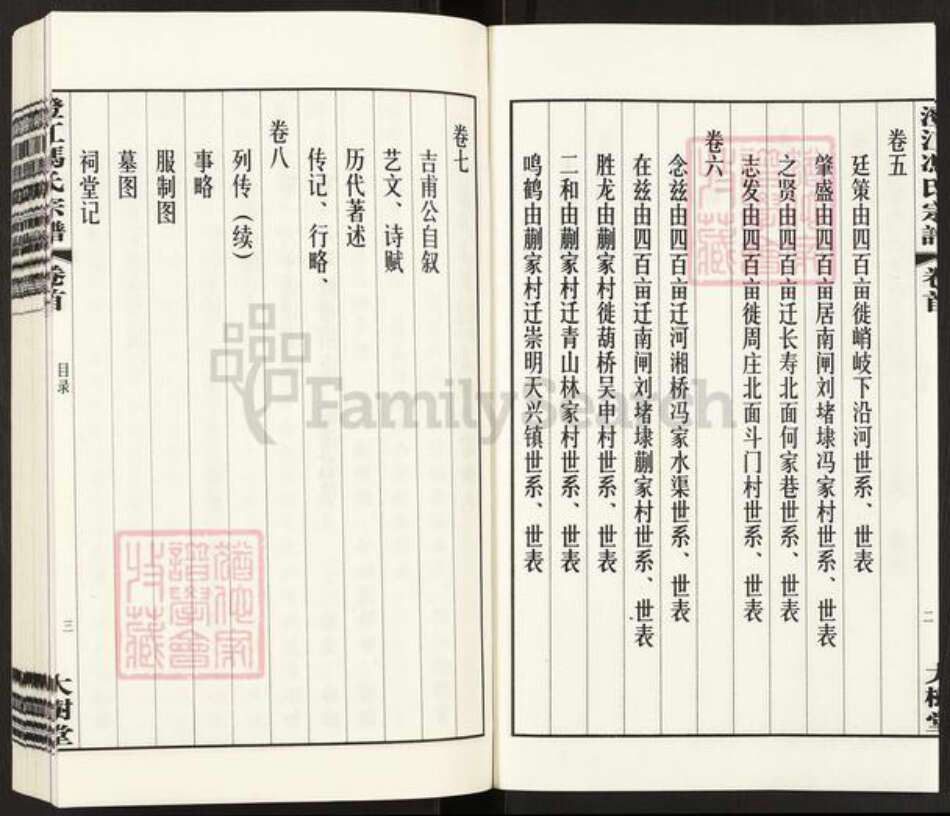 澄江冯氏宗谱 卷首 二 大树堂
卷五
廷策由四百亩徙峭岐下沿河世系、世表
肇盛由四百亩居南闸刘堵埭冯家村世系、世表
之贤由四百亩迁长寿北面何家巷世系、世表
志发由四百亩徙周庄北面斗门村世系、世表
卷六
念兹由四百亩迁河湘桥冯家水渠世系、世表
在兹由四百亩迁南闸刘堵埭蒯家村世系、世表
胜龙由蒯家村徙葫桥吴申村世系、世表
二和由蒯家村迁青山林家村世系、世表
鸣鹤由蒯家村迁崇明天兴镇世系、世表
卷七
吉甫公自叙
艺文、诗赋
历代著述
传记、行略、
卷八
列传（续）
事略
服制图
墓图
祠堂记
澄江馮氏宗譜 卷首 目录 三 大树堂
猶他家譜學會收藏
猶他家譜學會收藏
FamilySearch